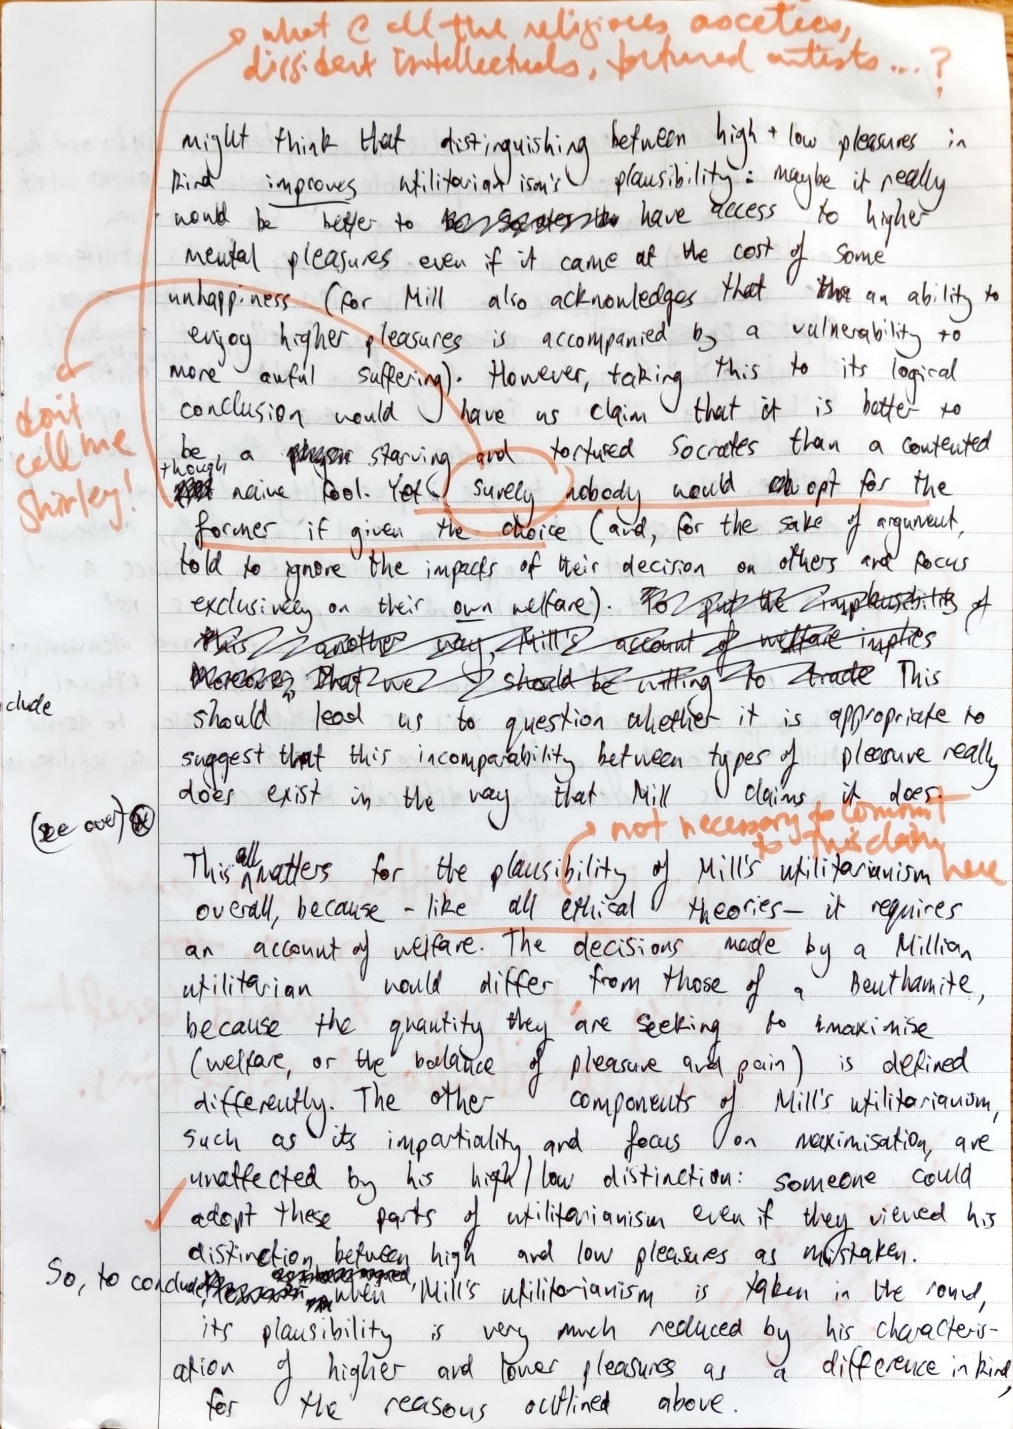 what @ all the religious ascetics,
dissident intellectuals, tortured artists...?
might think that distinguishing between high + low pleasures in
kind improves utilitarianism's plausibility: maybe it really
would be better to have access to higher
mental pleasures even if it came at the cost of some
unhappiness (for Mill also acknowledges that an ability to
enjoy higher pleasures is accompanied by a vulnerability to
more awful suffering). However, taking this to its logical
conclusion would have us claim that it is better to
be a starving and tortured Socrates than a contented
though naive fool. Yet surely nobody would opt for the
former if given the choice (and, for the sake of argument,
told to ignore the impacts of their decision on others and focus
exclusively on their own welfare). To put the implausibility of
this another way, Mill's account of welfare implies
that we should be willing to trade This
should lead us to question whether it is appropriate to
suggest that this incomparability between types of pleasure really
does exist in the way that Mill claims it does.
don't
call me
Shirley!
clude
(see over)
not necessary to commit
to this claim
here
This all matters for the plausibility of Mill's utilitarianism
overall, because – like all ethical theories – it requires
an account of welfare. The decisions made by a Millian
utilitarian would differ from those of a Benthamite,
because the quantity they are seeking to maximise
(welfare, or the balance of pleasure and pain) is defined
differently. The other components of Mill's utilitarianism,
such as its impartiality and focus on maximisation, are
unaffected by his high/low distinction: someone could
adopt these parts of utilitarianism even if they viewed his
distinction between high and low pleasures as mistaken.
So, to conclude, when Mill's utilitarianism is taken in the round,
its plausibility is very much reduced by his characteris-
ation of higher and lower pleasures as a difference in kind,
for the reasons outlined above.